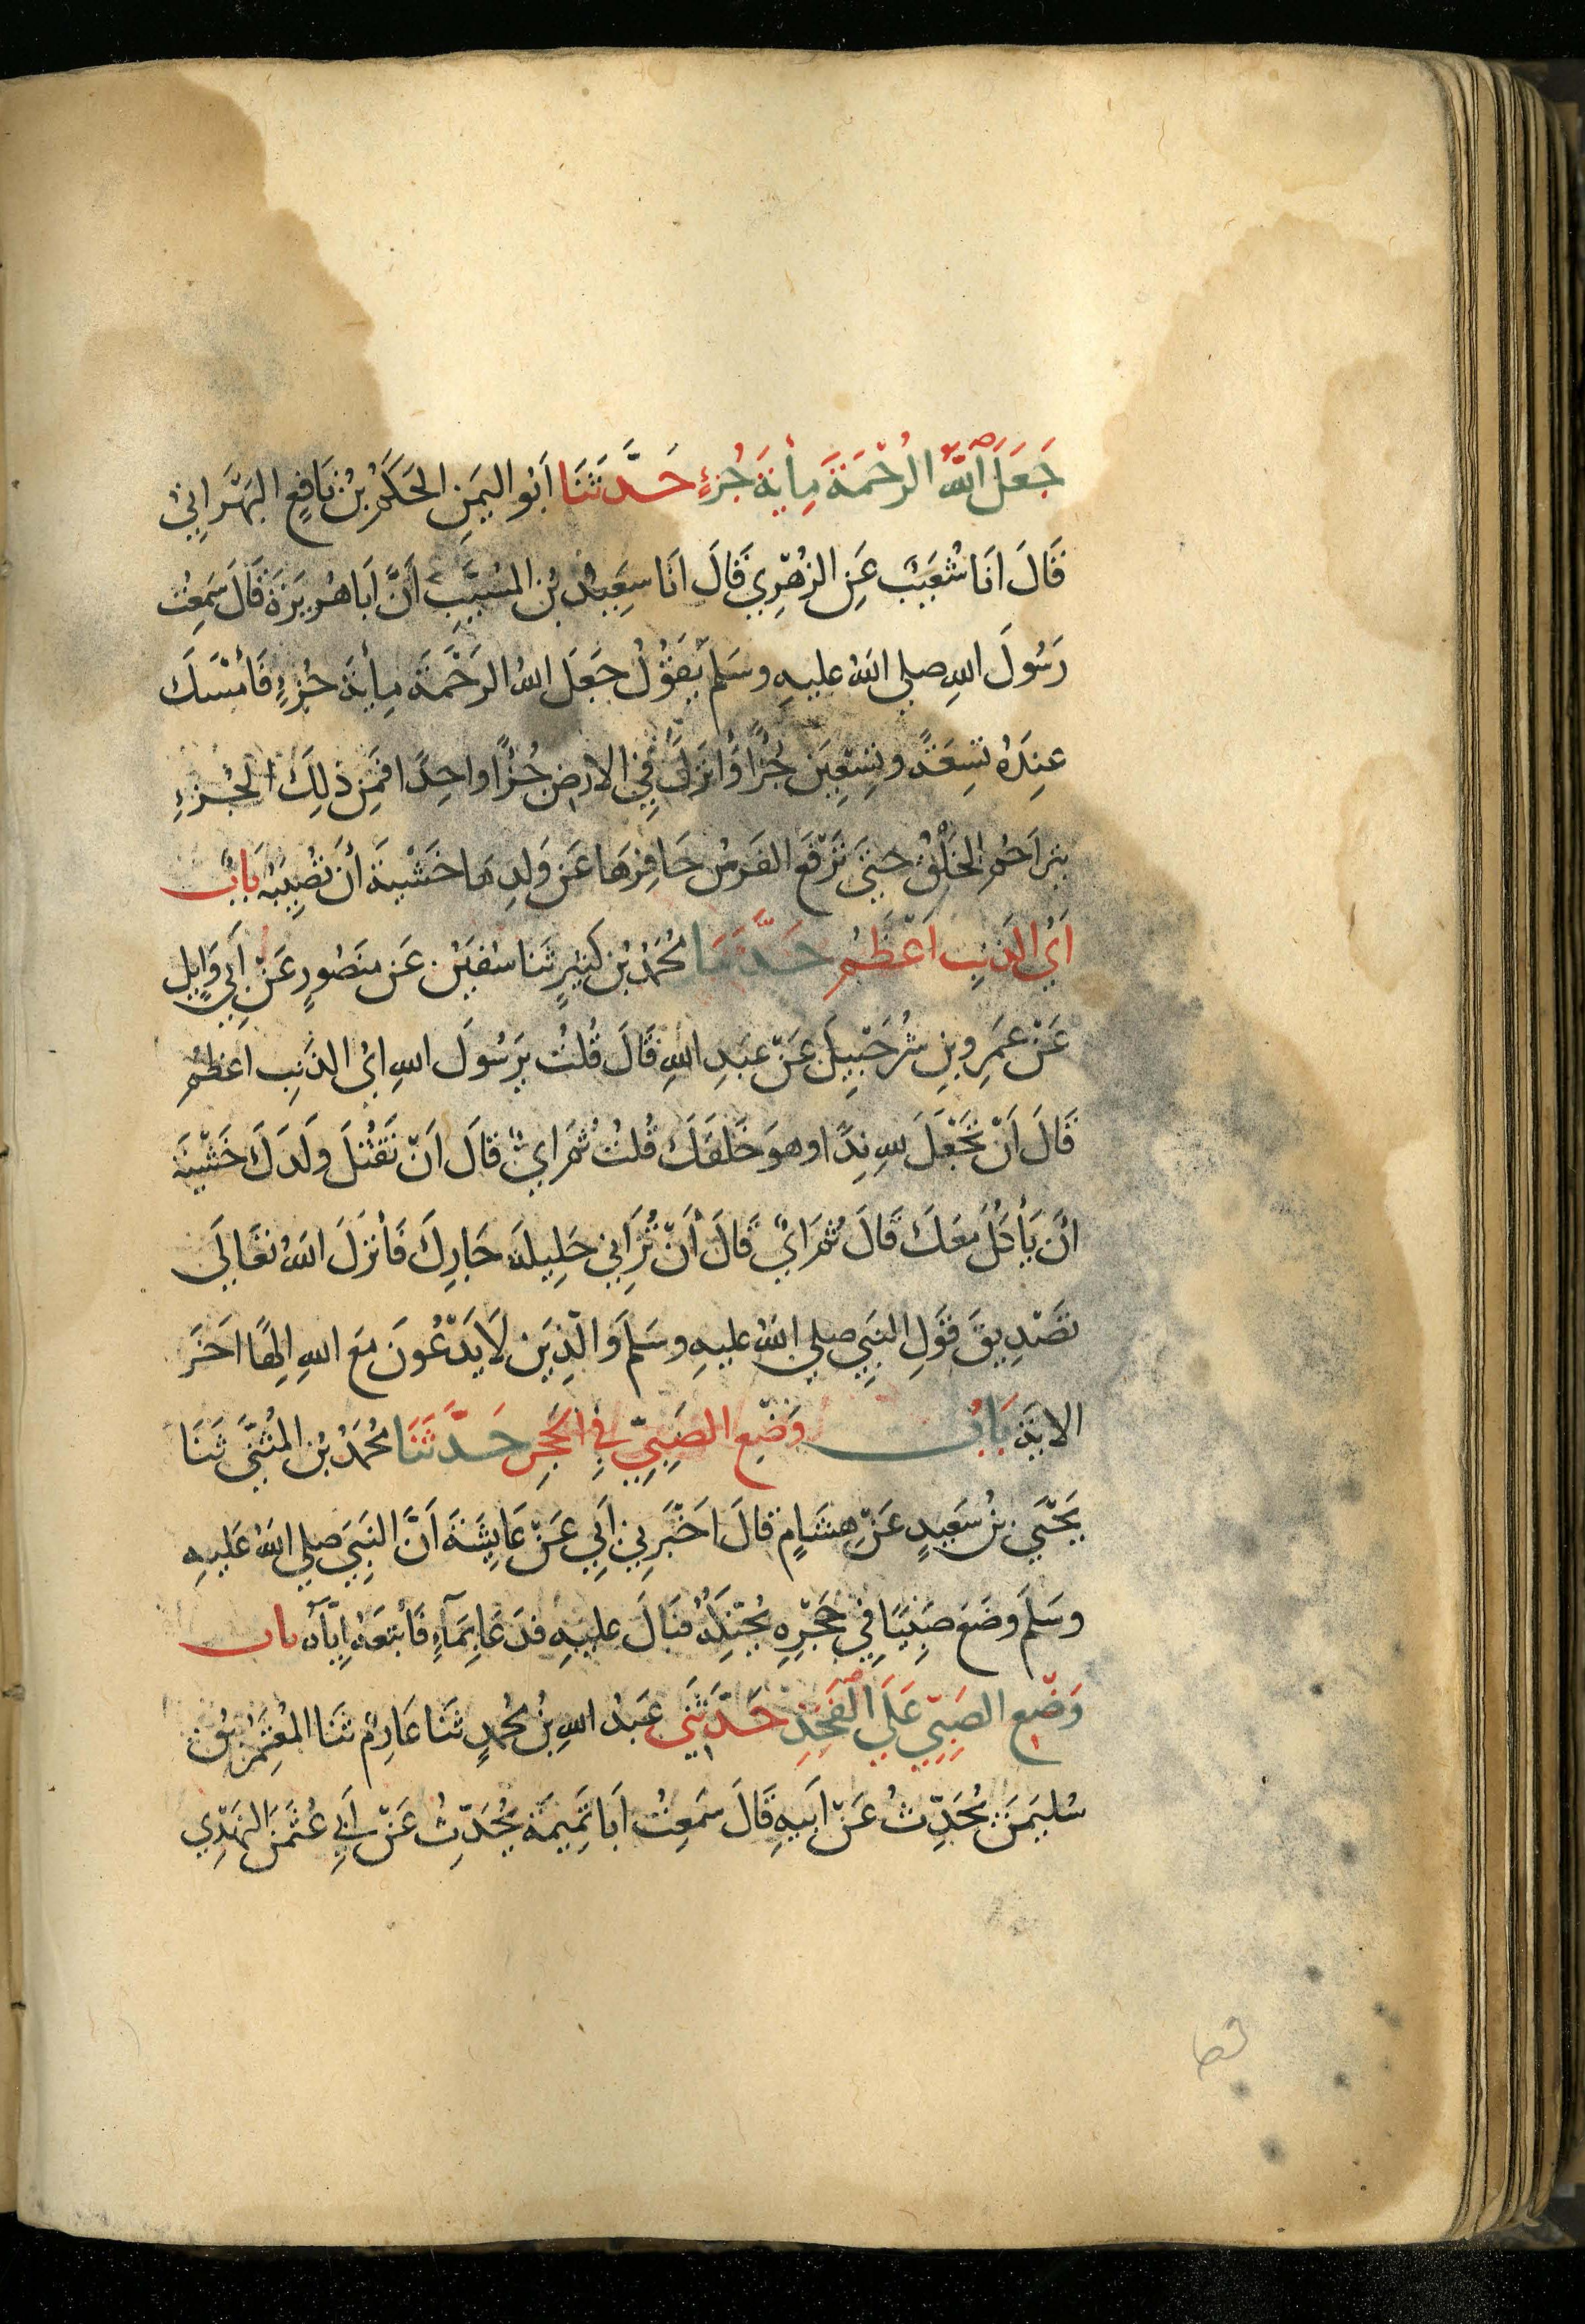 جَعَلَ اللّٰهُ الرَّحْمَةَ مِأيَةَ جُزْءٍ حَدَّثَنَا اَبُو اليَمَنِ الحَكَمُ بْنُ نَافِعٍ البَهْرَانِيُّ
قَالَ انَا شُعَيْبٌ عَنِ الزُهْرِيِّ قَالَ انَا سَعِيدُ بْنُ المُسَيَّبِ أَنَّ اَبَا هُرَيرَةَ قَالَ سَمِعْتُ
رَسُولَ اللهِ صلى اللهُ عليهِ وسَلم يَقُولُ جَعَلَ اللهُ الرَحْمَةَ مِأيَةَ جُزْءٍ فَأمْسَكَ
عِندَهُ تِسعَةً وتِسْعِينَ جُزْأً وَأَنزَلَ فِي الارضِ جُزْأً واحِدًا فَمِن ذلِكَ الجُزءِ
يتراحَمُ الخَلْقُ حَتَّى تَرْفَعَ الفَرَسُ حَافِرَهَا عَن وَلدِهَا خَشْيَةَ أَن تُصِيبَهُ بَابٌ
اَيُّ الذَنبِ اَعْظَمُ حَدَّثَنَا مُحَمَّدُ بْنُ كَثِيرٍ ثَنَا سُفيَنُ عَن مَنصُورٍ عَنْ اَبِي وَايِلٍ
عَنْ عَمرِو بنِ شُرَحْبِيلَ عَنْ عبدِ اللهِ قَالَ قُلتُ يَرَسُولَ اللهِ ايُّ الذَنبِ اعظمُ
قَالَ اَنْ تَجْعَلَ للهِ نِدًّا وهوَ خَلَقَكَ قُلتُ ثُمَ ايٌّ قَالَ اَنْ تَقتُلَ ولَدَكَ خَشْيَةَ
انْ يَأكُلَ مَعَكَ قَالَ ثُمَ ايٌّ قَالَ أَنْ تُزَانِي حَلِيلَةَ جَارِكَ فَأنزَلَ اللهُ تعَالَى
تَصْدِيقَ قَوْلِ النَّبِيِ صلى اللهُ عليهِ وسَلَم وَالّذِينَ لَا يَدْعُونَ مَعَ اللهِ اِلهًا اخَرَ
الايَةَ بَابُ وَضْعِ الصَبِيِّ فِي الحَجْرِ حَدَّثَنَا مُحَمَّدُ بْنُ المُثَنَّى ثَنَا
يَحْيَى بْنُ سَعِيدٍ عَنْ هِشَامٍ قَالَ اَخْبَرَنِي اَبِي عَنْ عَايِشَةَ اَنَّ النَبِيَ صلى اللهُ عَلَيهِ
وسَلَمَ وضَعَ صَبِيًّا فِي حَجْرِهِ يُحَنِّكُهُ فَبَالَ عليهِ فدَعَا بِمَآءٍ فَأتبَعَهُ اِيَّآهُ باب
وَضْعِ الصَبِيِّ عَلَى الفَخِذِ حَدَّثَنِي عَبدُ اللهِ بْنُ مُحَمَدٍ ثَنَا عَارِمٌ ثَنَا المُعْتَمِرُ بْنُ
سُليمَنَ يُحَدِّثُ عَنْ اَبيهِ قَالَ سَمِعتُ اَبَا تَمِيمَةَ يُحَدِّثُ عَنْ اَبِي عُثمَنَ النَهْدِي